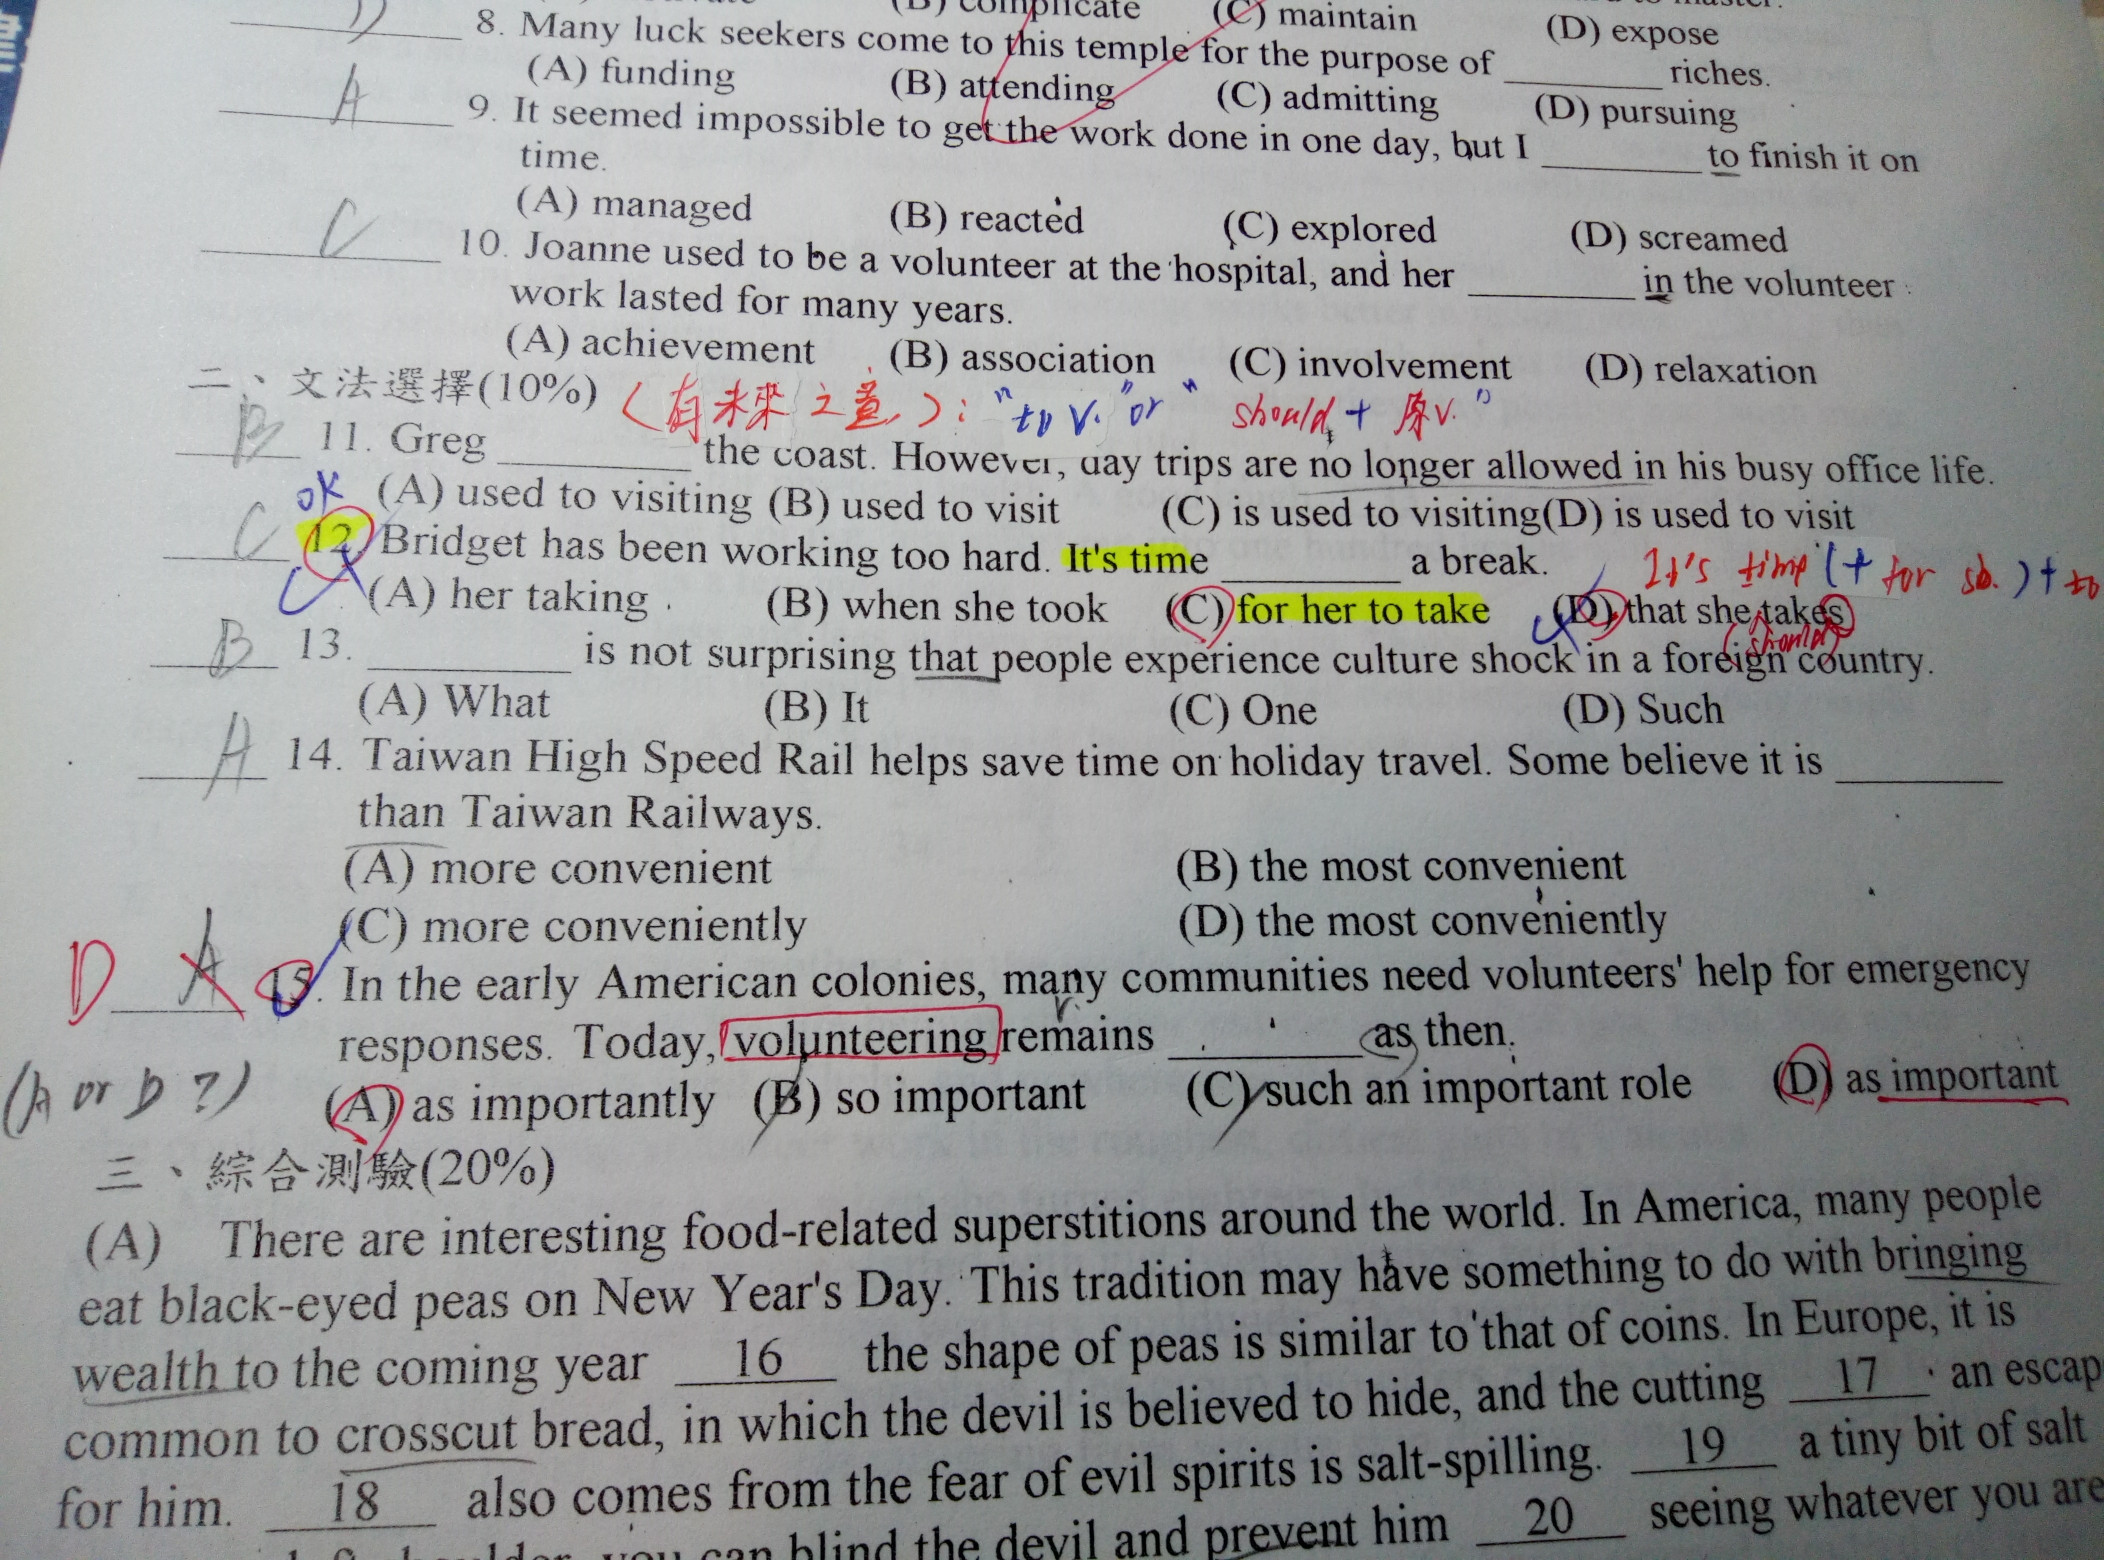 (B) complicate (C) maintain (D) expose
D 8. Many luck seekers come to this temple for the purpose of ________ riches.
(A) funding (B) attending (C) admitting (D) pursuing
A 9. It seemed impossible to get the work done in one day, but I ________ to finish it on
time.
(A) managed (B) reacted (C) explored (D) screamed
C 10. Joanne used to be a volunteer at the hospital, and her ________ in the volunteer
work lasted for many years.
(A) achievement (B) association (C) involvement (D) relaxation
二、文法選擇(10%) (有未來之意): "to V." or "should + 原V."
B 11. Greg ________ the coast. However, day trips are no longer allowed in his busy office life.
ok (A) used to visiting (B) used to visit (C) is used to visiting(D) is used to visit
C 12. Bridget has been working too hard. It's time ________ a break. It's time (+ for sb.) + to
(A) her taking (B) when she took (C) for her to take (D) that she takes
(should)
B 13. ________ is not surprising that people experience culture shock in a foreign country.
(A) What (B) It (C) One (D) Such
A 14. Taiwan High Speed Rail helps save time on holiday travel. Some believe it is ________
than Taiwan Railways.
(A) more convenient (B) the most convenient
(C) more conveniently (D) the most conveniently
D A 15. In the early American colonies, many communities need volunteers' help for emergency
v.
responses. Today, volunteering remains ________ as then.
(A or D ?) (A) as importantly (B) so important (C) such an important role (D) as important
三、綜合測驗(20%)
(A) There are interesting food-related superstitions around the world. In America, many people
eat black-eyed peas on New Year's Day. This tradition may have something to do with bringing
wealth to the coming year 16 the shape of peas is similar to that of coins. In Europe, it is
common to crosscut bread, in which the devil is believed to hide, and the cutting 17 an escap
for him. 18 also comes from the fear of evil spirits is salt-spilling. 19 a tiny bit of salt
you can blind the devil and prevent him 20 seeing whatever you are